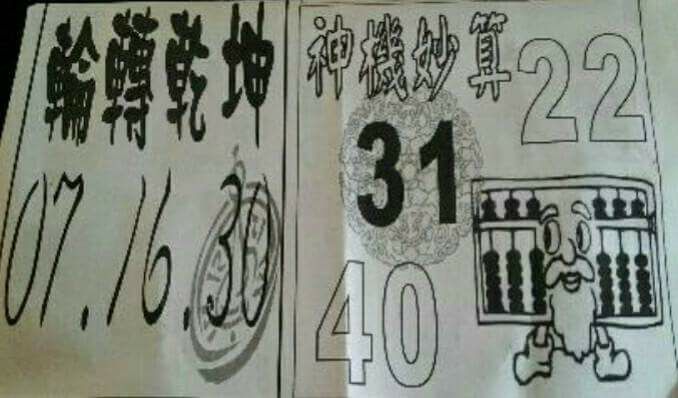 輪轉乾坤
07.16.30
神機妙算
22
31
40